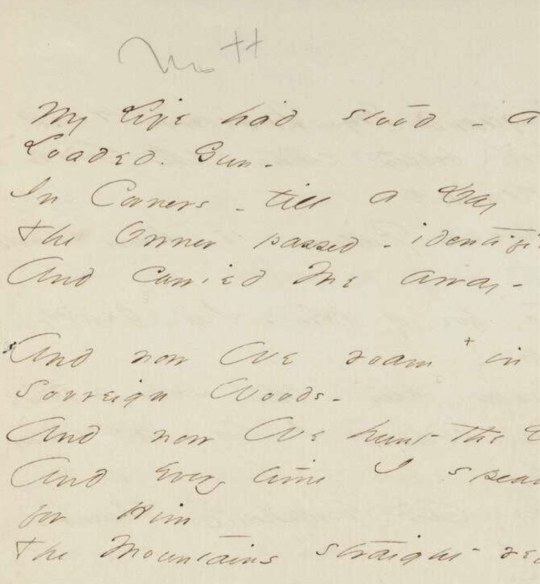 My Life had stood - a
Loaded Gun -
In Corners - till a Day
The Owner passed - identifi
And carried Me away -
And now We roam + in
Sovreign Woods -
And now We hunt the D
And every time I speak
for Him
The Mountains straight re